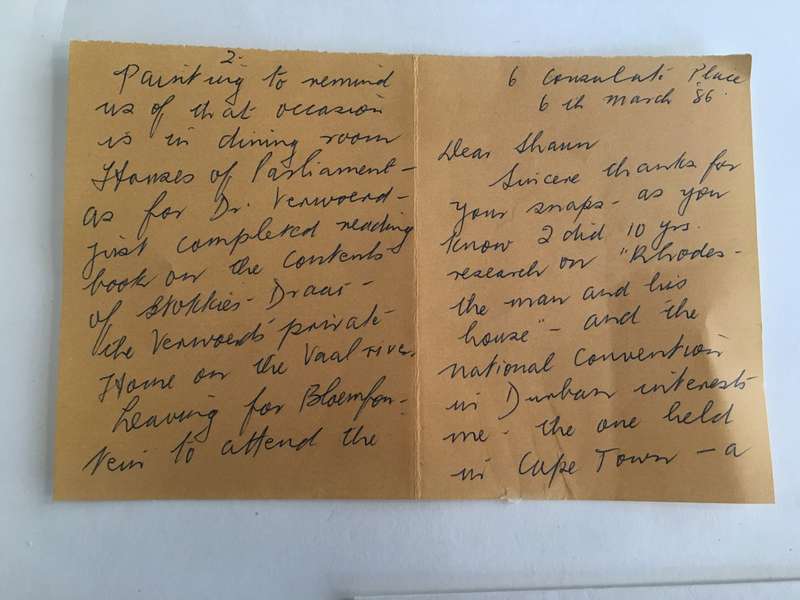 6 Consulate Place
6th March '86.
Dear Shaun
Sincere thanks for
your snaps - as you
know I did 10 yrs.
research on "Rhodes -
the man and his
house" - and the
national Convention
in Durban interests
me - the one held
in Cape Town - a
2.
Painting to remind
us of that occasion
is in dining room
Houses of Parliament -
as for Dr. Verwoerd -
just completed reading
book on the contents
of Stokkies-Draai -
the Verwoerds private
Home on the Vaal river
Leaving for Bloemfon-
tein to attend the